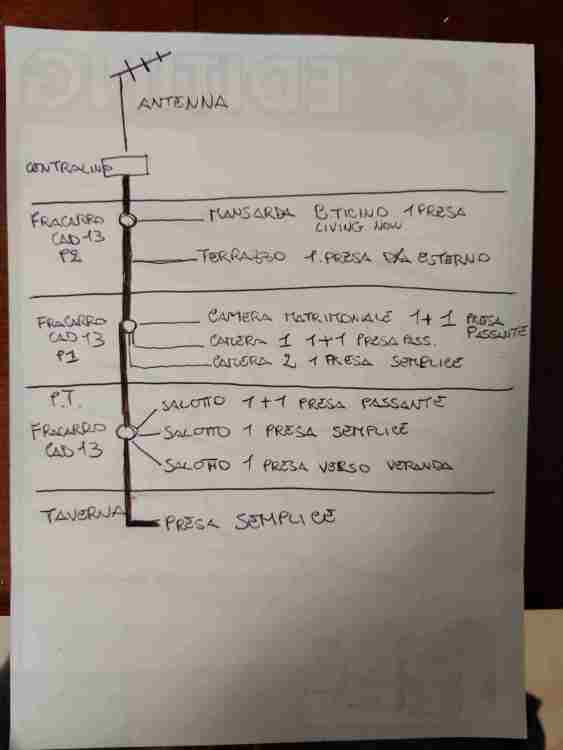 ANTENNA
CENTRALINO
FRACARRO
CAD 13
P2
MANSARDA BTICINO 1 PRESA
LIVING NOW
TERRAZZO 1 PRESA DA ESTERNO
FRACARRO
CAD 13
P1
CAMERA MATRIMONIALE 1+1 PRESA
PASSANTE
CAMERA 1 1+1 PRESA PASS.
CAMERA 2 1 PRESA SEMPLICE
P.T.
FRACARRO
CAD 13
SALOTTO 1+1 PRESA PASSANTE
SALOTTO 1 PRESA SEMPLICE
SALOTTO 1 PRESA VERSO VERANDA
TAVERNA
PRESA SEMPLICE